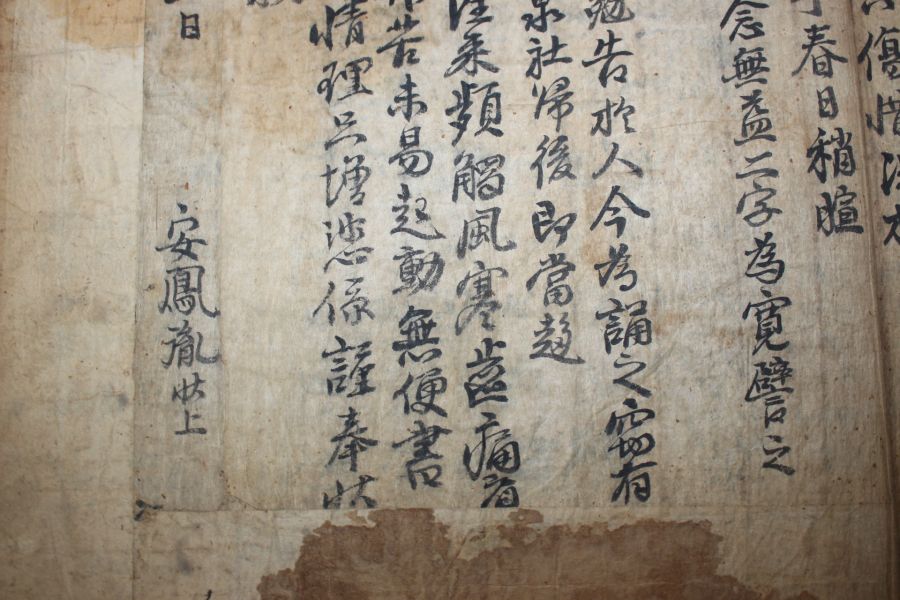 傷惜
春日稍暄
念無益二字為寬譬之
勉告於人今為誦之窃有
泉社帰後即當趍
往来頻觸風寒齒痛
苦未易起動無便書
情理只增悲係謹奉狀
日
安鳳胤狀上